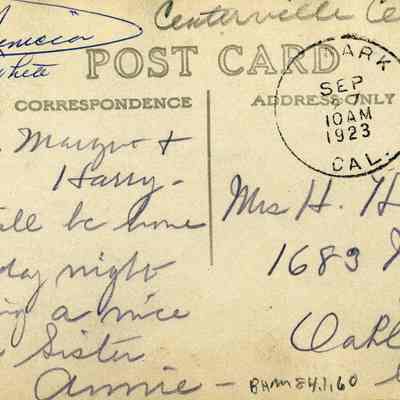 Centerville Ce
White
POST CARD
CORRESPONDENCE
ADDRESS ONLY
PARK
SEP
7
10 AM
1923
CAL.
&
Harry -
ll be home
day night
g a nice
Sister
Annie -
Mrs H. H
1683
Oakl
BHM 84.1.60